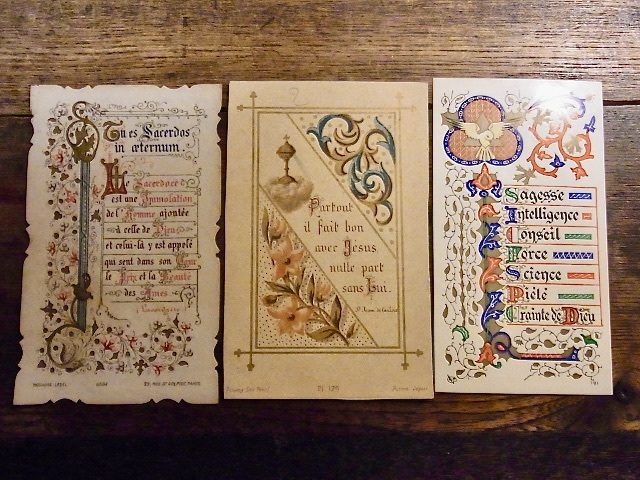 Tu es Sacerdos
in æternum.
Le Sacerdoce
est une Immolation
de l'Homme ajoutée
à celle de Dieu
et celui-là y est appelé
qui sent dans son Cœur
le Prix et la Beauté
des Âmes
Partout
il fait bon
avec Jésus
nulle part
sans Lui.
Sagesse
Intelligence
Conseil
Force
Science
Piété
Crainte de Dieu